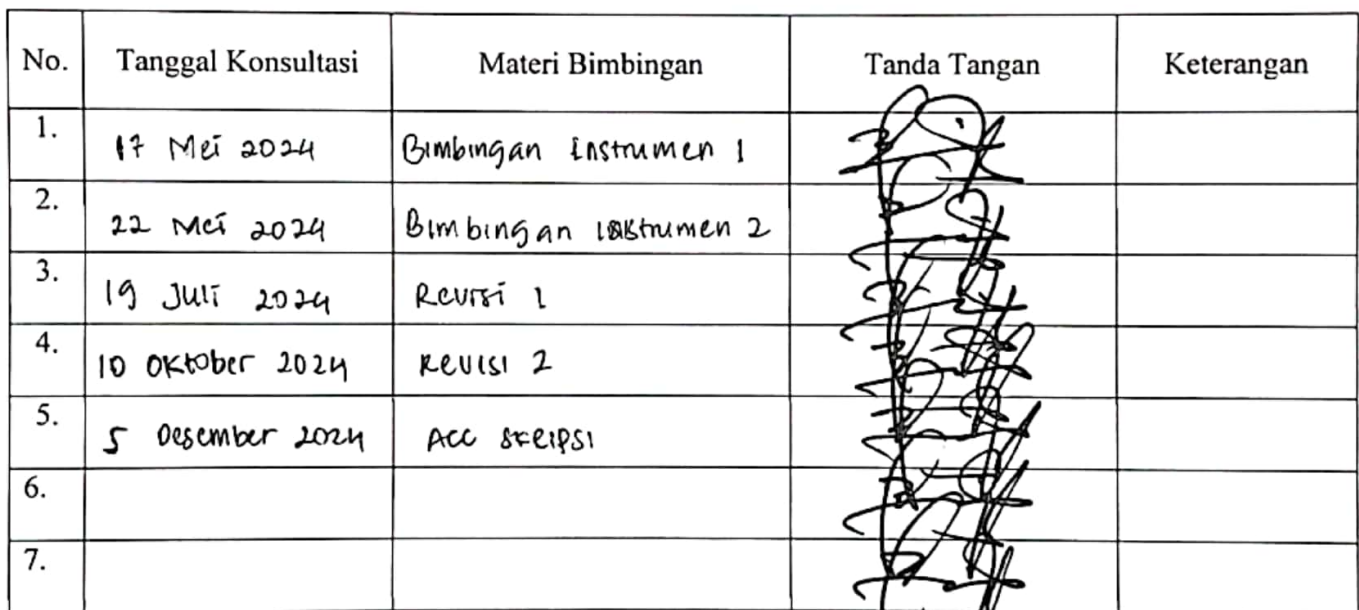 No. Tanggal Konsultasi Materi Bimbingan Tanda Tangan Keterangan
1. 17 Mei 2024 Bimbingan Instrumen 1
2. 22 Mei 2024 Bimbingan Instrumen 2
3. 19 Juli 2024 Revisi 1
4. 10 Oktober 2024 Revisi 2
5. 5 Desember 2024 Acc Skripsi
6.
7.